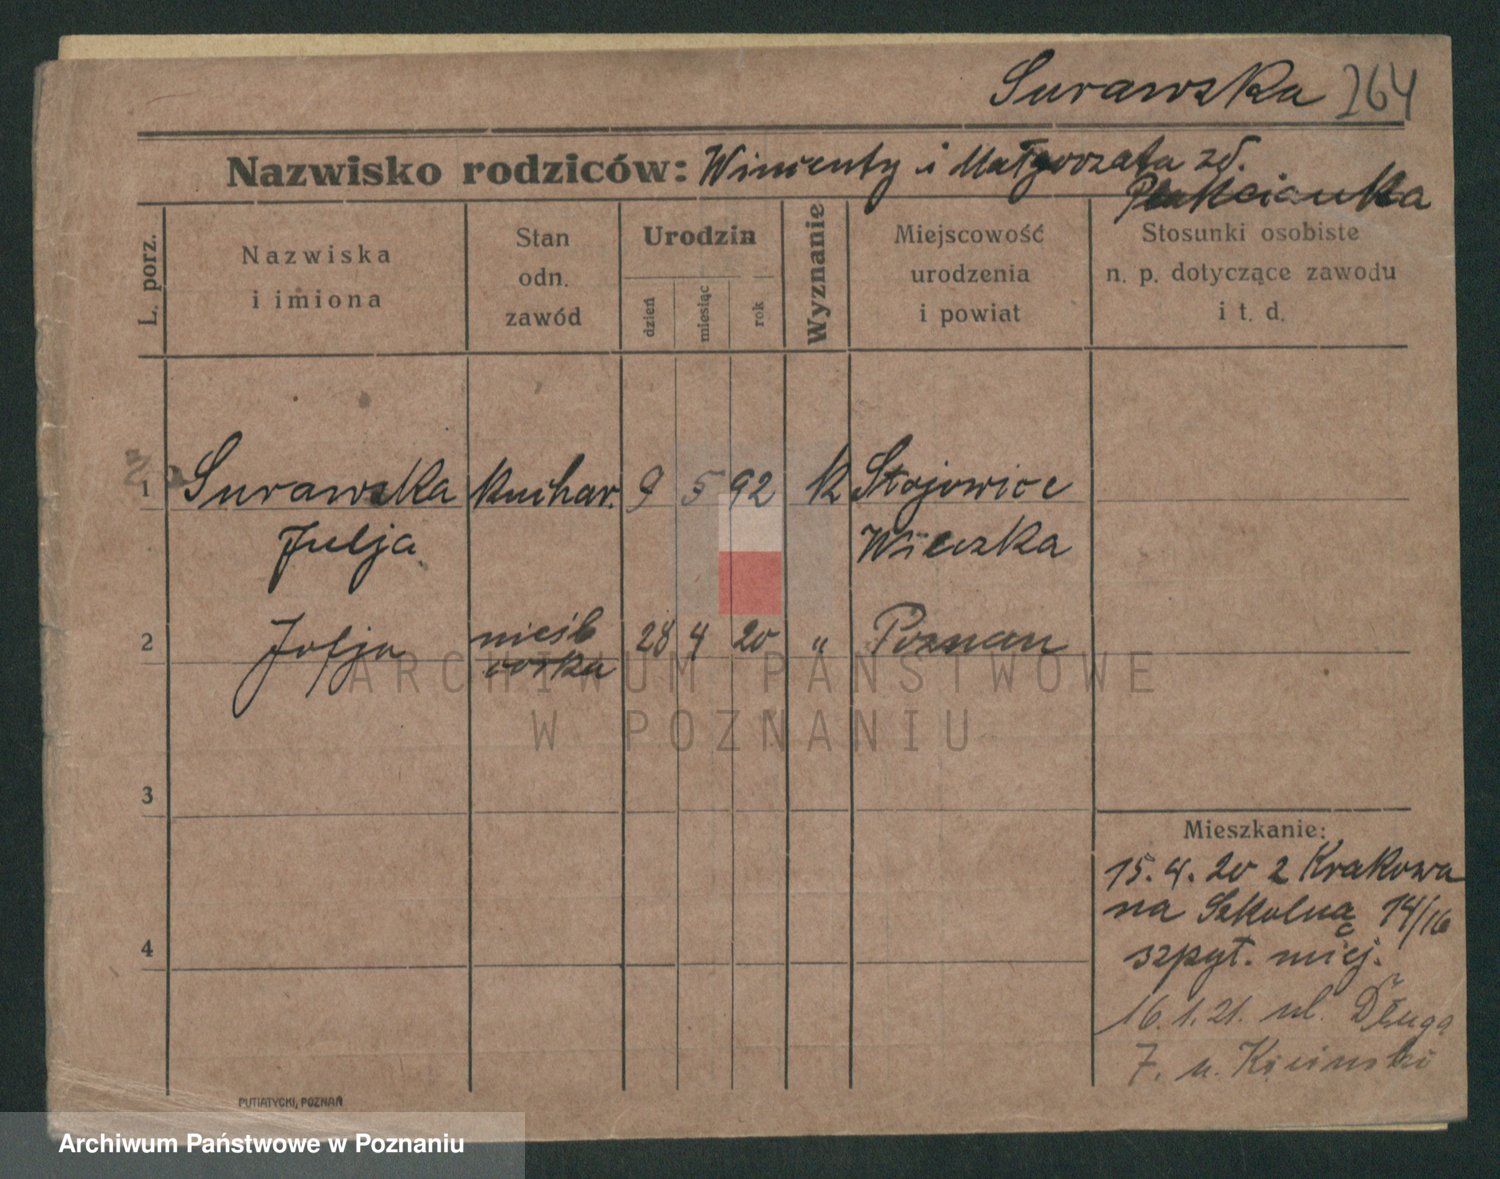 Surawska 264
Nazwisko rodziców: Wincenty i Małgorzata zd.
L. porz.
Nazwiska
i imiona
Stan
odn.
zawód
Urodzin
dzień
miesiąc
rok
Wyznanie
Miejscowość
urodzenia
i powiat
Stosunki osobiste
n. p. dotyczące zawodu
i t. d.
1 Surawska kuchar. 9 5 92 k Stojowice
Julja Wieczka
2 Zofja nieśb 28 4 20 " Poznan
corka
3
4
Mieszkanie:
15. 4. 20 z Krakowa
na Szkolną 14/16
szpyt. miej.
16.1.21. ul. Długa
7. u.
PUTIATYCKI, POZNAŃ
ARCHIWUM PAŃSTWOWE
W POZNANIU
Archiwum Państwowe w Poznaniu